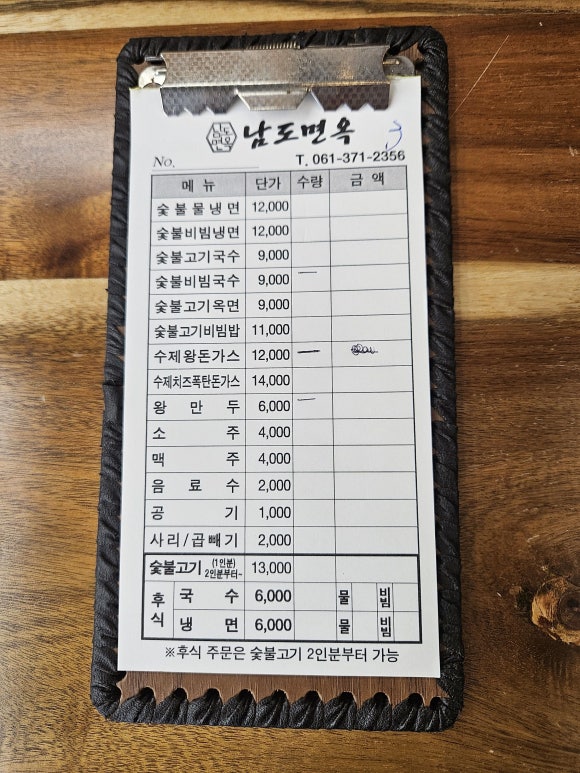 남도면옥 남도면옥
No. T. 061-371-2356
메뉴 단가 수량 금액
숯불물냉면 12,000
숯불비빔냉면 12,000
숯불고기국수 9,000
숯불비빔국수 9,000 一
숯불고기옥면 9,000
숯불고기비빔밥 11,000
수제왕돈가스 12,000 一
수제치즈폭탄돈가스 14,000
왕만두 6,000 一
소주 4,000
맥주 4,000
음료수 2,000
공기 1,000
사리/곱빼기 2,000
숯불고기 (1인분) 2인분부터~ 13,000
후식 국수 6,000 물 비빔
냉면 6,000 물 비빔
※후식 주문은 숯불고기 2인분부터 가능